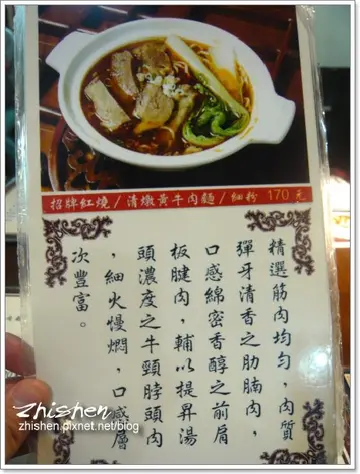 招牌紅燒/清燉黃牛肉麵/細粉 170元
精選筋肉均勻,肉質
彈牙清香之肋腩肉,
口感綿密香醇之前肩
板腱肉,輔以提昇湯
頭濃度之牛頸脖頭肉
,細火慢燜,口感層
次豐富。
zhishen
zhishen.pixnet.net/blog